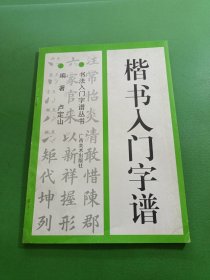 楷书入门字谱
书法入门字谱丛书
广西美术出版社
编著 卢定山
常怡炎清敢惜陳郡
六家官朱以新祥握形
矩代坤列